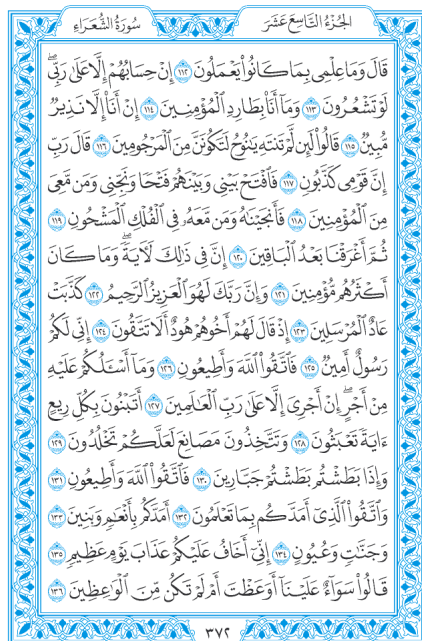 الجزء التاسع عشر
سورة الشعراء
قَالَ وَمَا عِلْمِى بِمَا كَانُوا۟ يَعْمَلُونَ ١١٢ إِنْ حِسَابُهُمْ إِلَّا عَلَىٰ رَبِّى ۖ
لَوْ تَشْعُرُونَ ١١٣ وَمَآ أَنَا۠ بِطَارِدِ ٱلْمُؤْمِنِينَ ١١٤ إِنْ أَنَا۠ إِلَّا نَذِيرٌ
مُّبِينٌ ١١٥ قَالُوا۟ لَئِن لَّمْ تَنتَهِ يَٰنُوحُ لَتَكُونَنَّ مِنَ ٱلْمَرْجُومِينَ ١١٦ قَالَ رَبِّ
إِنَّ قَوْمِى كَذَّبُونِ ١١٧ فَٱفْتَحْ بَيْنِى وَبَيْنَهُمْ فَتْحًا وَنَجِّنِى وَمَن مَّعِىَ
مِنَ ٱلْمُؤْمِنِينَ ١١٨ فَأَنجَيْنَٰهُ وَمَن مَّعَهُۥ فِى ٱلْفُلْكِ ٱلْمَشْحُونِ ١١٩
ثُمَّ أَغْرَقْنَا بَعْدُ ٱلْبَاقِينَ ١٢٠ إِنَّ فِى ذَٰلِكَ لَءَايَةً ۖ وَمَا كَانَ
أَكْثَرُهُم مُّؤْمِنِينَ ١٢١ وَإِنَّ رَبَّكَ لَهُوَ ٱلْعَزِيزُ ٱلرَّحِيمُ ١٢٢ كَذَّبَتْ
عَادٌ ٱلْمُرْسَلِينَ ١٢٣ إِذْ قَالَ لَهُمْ أَخُوهُمْ هُودٌ أَلَا تَتَّقُونَ ١٢٤ إِنِّى لَكُمْ
رَسُولٌ أَمِينٌ ١٢٥ فَٱتَّقُوا۟ ٱللَّهَ وَأَطِيعُونِ ١٢٦ وَمَآ أَسْـَٔلُكُمْ عَلَيْهِ
مِنْ أَجْرٍ ۖ إِنْ أَجْرِىَ إِلَّا عَلَىٰ رَبِّ ٱلْعَٰلَمِينَ ١٢٧ أَتَبْنُونَ بِكُلِّ رِيعٍ
ءَايَةً تَعْبَثُونَ ١٢٨ وَتَتَّخِذُونَ مَصَانِعَ لَعَلَّكُمْ تَخْلُدُونَ ١٢٩
وَإِذَا بَطَشْتُم بَطَشْتُمْ جَبَّارِينَ ١٣٠ فَٱتَّقُوا۟ ٱللَّهَ وَأَطِيعُونِ ١٣١
وَٱتَّقُوا۟ ٱلَّذِىٓ أَمَدَّكُم بِمَا تَعْلَمُونَ ١٣٢ أَمَدَّكُم بِأَنْعَٰمٍ وَبَنِينَ ١٣٣
وَجَنَّٰتٍ وَعُيُونٍ ١٣٤ إِنِّىٓ أَخَافُ عَلَيْكُمْ عَذَابَ يَوْمٍ عَظِيمٍ ١٣٥
قَالُوا۟ سَوَآءٌ عَلَيْنَآ أَوَعَظْتَ أَمْ لَمْ تَكُن مِّنَ ٱلْوَٰعِظِينَ ١٣٦
٣٧٢